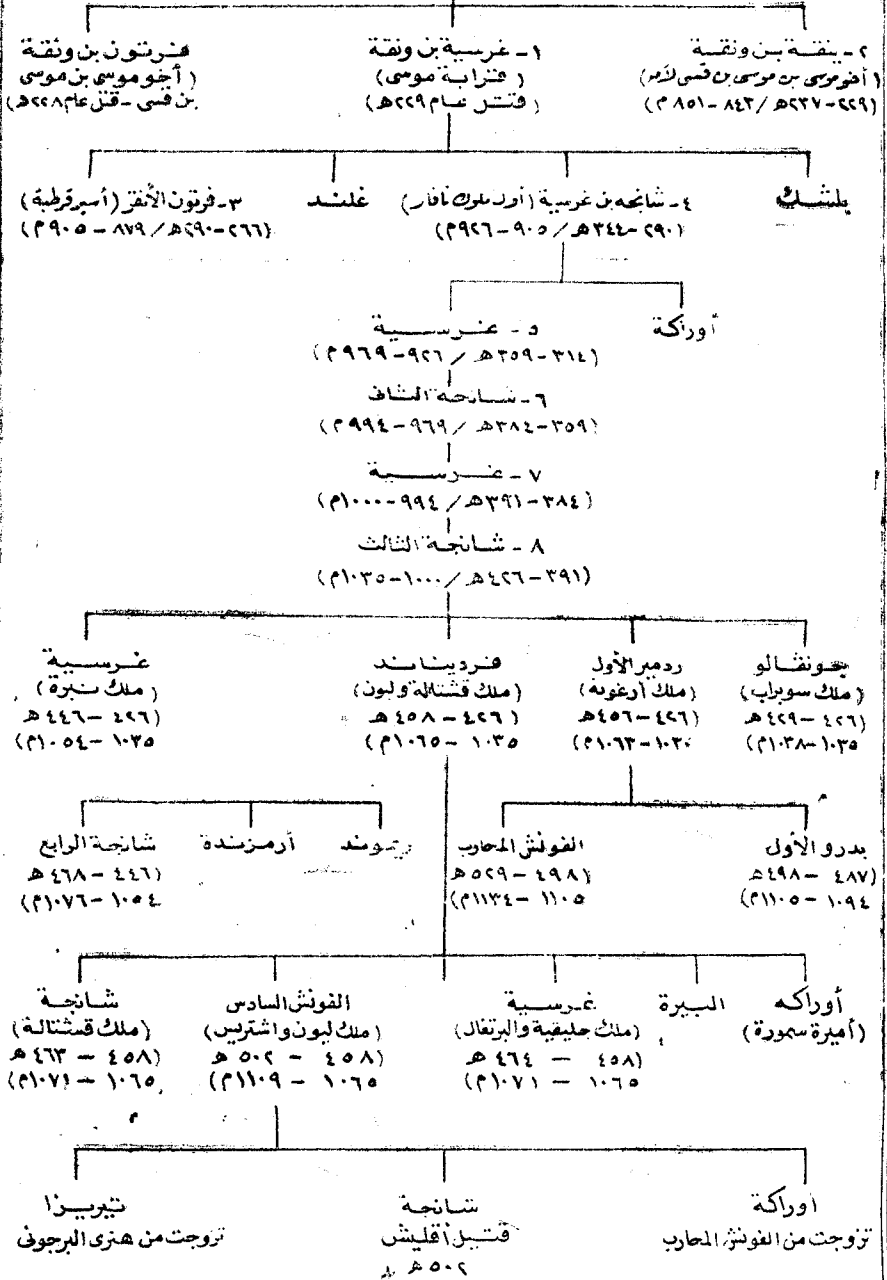 ٢ - ينقة بن ونقة
(أخو موسى بن موسى بن قسى لأمه)
(٢٢٩-٢٣٧هـ/ ٨٤٣ - ٨٥١ م)
١ - غرسية بن ونقة
(قرابة موسى)
(قتل عام ٢٢٩هـ)
فرتون بن ونقة
(أخو موسى بن موسى
بن قسى - قتل عام ٢٢٨هـ)
يلشك
٤ - شانجه بن غرسية (أول ملوك نافار)
(٢٩٠ - ٣٤٤هـ / ٩٠٥ - ٩٢٦م)
غلند
٣ - فرتون الأنقر (أسير قرطبة)
(٢٦٦-٢٩٠هـ/ ٨٧٩ - ٩٠٥م)
أوراكة
٥ - غرسية
(٣١٤-٣٥٩هـ / ٩٢٦-٩٦٩م)
٦ - شانجة الثانى
(٣٥٩-٣٨٤هـ / ٩٦٩-٩٩٤م)
٧ - غرسية
(٣٨٤-٣٩١هـ / ٩٩٤-١٠٠٠م)
٨ - شانجة الثالث
(٣٩١-٤٢٦هـ/١٠٠٠-١٠٣٥م)
جونقالو
(ملك سوبراب)
(٤٢٦-٤٢٩هـ
١٠٣٥-١٠٣٨م)
ردمير الأول
(ملك أرغونة)
(٤٢٦-٤٥٦هـ
١٠٣٠-١٠٦٣م)
فرديناند
(ملك قشتالة وليون)
(٤٢٦ - ٤٥٨ هـ
١٠٣٥ - ١٠٦٥م)
غرسية
(ملك نبرة)
(٤٢٦ - ٤٤٦ هـ
١٠٣٥ - ١٠٥٤م)
بدرو الأول
(٤٨٧ - ٤٩٨هـ
١٠٩٤ - ١١٠٥م)
الفونش المحارب
(٤٩٨ - ٥٢٩هـ
١١٠٥ - ١١٣٤م)
ريموند
أرمزندة
شانجة الرابع
(٤٤٦ - ٤٦٨هـ
١٠٥٤ - ١٠٧٦م)
أوراكه
(أميرة سمورة)
البيرة
غرسية
(ملك جليقية والبرتغال)
(٤٥٨ - ٤٦٤ هـ
١٠٦٥ - ١٠٧١م)
الفونش السادس
(ملك ليون واشتريس)
(٤٥٨ - ٥٠٢ هـ
١٠٦٥ - ١١٠٩م)
شانجة
(ملك قشتالة)
(٤٥٨ - ٤٦٣ هـ
١٠٦٥ - ١٠٧١م)
أوراكة
تزوجت من الفونش المحارب
شانجة
قتيل أقليش
٥٠٢ هـ
تيريزا
تزوجت من هنرى البرجونى